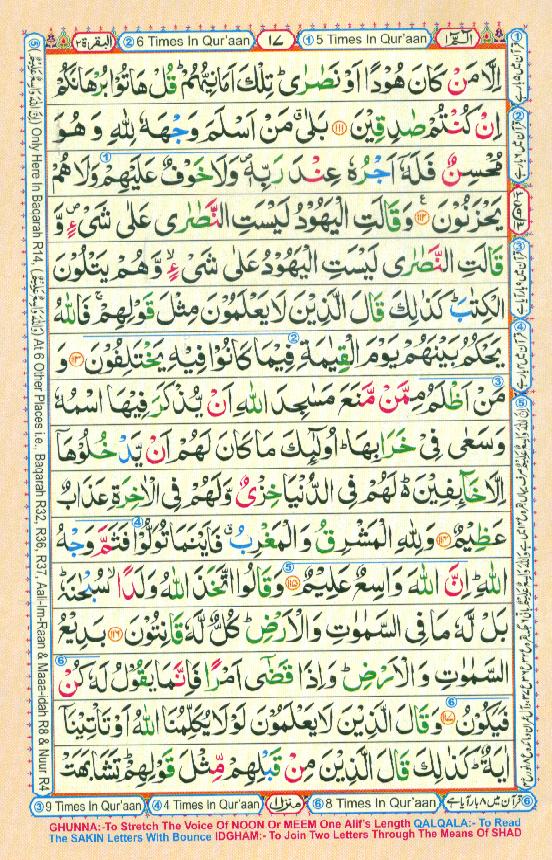 الٓمّٓ ١
① 5 Times In Qur'aan
١٧
② 6 Times In Qur'aan
البقرة ٢
اِلَّا مَنْ كَانَ هُوْدًا اَوْ نَصٰرٰى ؕ تِلْكَ اَمَانِيُّهُمْ ؕ قُلْ هَاتُوْا بُرْهَانَكُمْ
اِنْ كُنْتُمْ صٰدِقِيْنَ ﴿۱۱۱﴾ بَلٰى ۗ مَنْ اَسْلَمَ وَجْهَهٗ لِلّٰهِ وَ هُوَ
مُحْسِنٌ فَلَهٗۤ اَجْرُهٗ عِنْدَ رَبِّهٖ ۪ وَلَا خَوْفٌ عَلَيْهِمْ وَلَا هُمْ
يَحْزَنُوْنَ ﴿۱۱۲﴾ وَقَالَتِ الْيَهُوْدُ لَيْسَتِ النَّصٰرٰى عَلٰى شَيْءٍ ۪ وَّ
قَالَتِ النَّصٰرٰى لَيْسَتِ الْيَهُوْدُ عَلٰى شَيْءٍ ۙ وَّهُمْ يَتْلُوْنَ
الْكِتٰبَ ؕ كَذٰلِكَ قَالَ الَّذِيْنَ لَا يَعْلَمُوْنَ مِثْلَ قَوْلِهِمْ ۚ فَاللّٰهُ
يَحْكُمُ بَيْنَهُمْ يَوْمَ الْقِيٰمَةِ فِيْمَا كَانُوْا فِيْهِ يَخْتَلِفُوْنَ ﴿۱۱۳﴾ وَ
مَنْ اَظْلَمُ مِمَّنْ مَّنَعَ مَسٰجِدَ اللّٰهِ اَنْ يُّذْكَرَ فِيْهَا اسْمُهٗ
وَسَعٰى فِيْ خَرَابِهَا ؕ اُولٰٓئِكَ مَا كَانَ لَهُمْ اَنْ يَّدْخُلُوْهَاۤ
اِلَّا خَآئِفِيْنَ ؕ لَهُمْ فِي الدُّنْيَا خِزْيٌ وَّلَهُمْ فِي الْاٰخِرَةِ عَذَابٌ
عَظِيْمٌ ﴿۱۱۴﴾ وَلِلّٰهِ الْمَشْرِقُ وَالْمَغْرِبُ ۗ فَاَيْنَمَا تُوَلُّوْا فَثَمَّ وَجْهُ
اللّٰهِ ؕ اِنَّ اللّٰهَ وَاسِعٌ عَلِيْمٌ ﴿۱۱۵﴾ وَقَالُوا اتَّخَذَ اللّٰهُ وَلَدًا ۙ سُبْحٰنَهٗ ؕ
بَلْ لَّهٗ مَا فِي السَّمٰوٰتِ وَالْاَرْضِ ؕ كُلٌّ لَّهٗ قٰنِتُوْنَ ﴿۱۱۶﴾ بَدِيْعُ
السَّمٰوٰتِ وَالْاَرْضِ ؕ وَاِذَا قَضٰۤى اَمْرًا فَاِنَّمَا يَقُوْلُ لَهٗ كُنْ
فَيَكُوْنُ ﴿۱۱۷﴾ وَقَالَ الَّذِيْنَ لَا يَعْلَمُوْنَ لَوْلَا يُكَلِّمُنَا اللّٰهُ اَوْ تَاْتِيْنَاۤ
اٰيَةٌ ؕ كَذٰلِكَ قَالَ الَّذِيْنَ مِنْ قَبْلِهِمْ مِّثْلَ قَوْلِهِمْ ؕ تَشَابَهَتْ
⑤ (اِنَّ اللّٰهَ وَاسِعٌ عَلِيْمٌ) Only Here In Baqarah R14, (وَاللّٰهُ وَاسِعٌ عَلِيْمٌ) At 6 Other Places i.e., Baqarah R32, R36, R37, Aali-Im-Raan & Maaa-idah R8 & Nuur R4
⑥ قرآن میں ۸ بار آیا ہے
⑥ 8 Times In Qur'aan
منزل ١
④ 4 Times In Qur'aan
③ 9 Times In Qur'aan
GHUNNA:-To Stretch The Voice Of NOON Or MEEM One Alif's Length QALQALA:- To Read
The SAKIN Letters With Bounce IDGHAM:- To Join Two Letters Through The Means Of SHAD